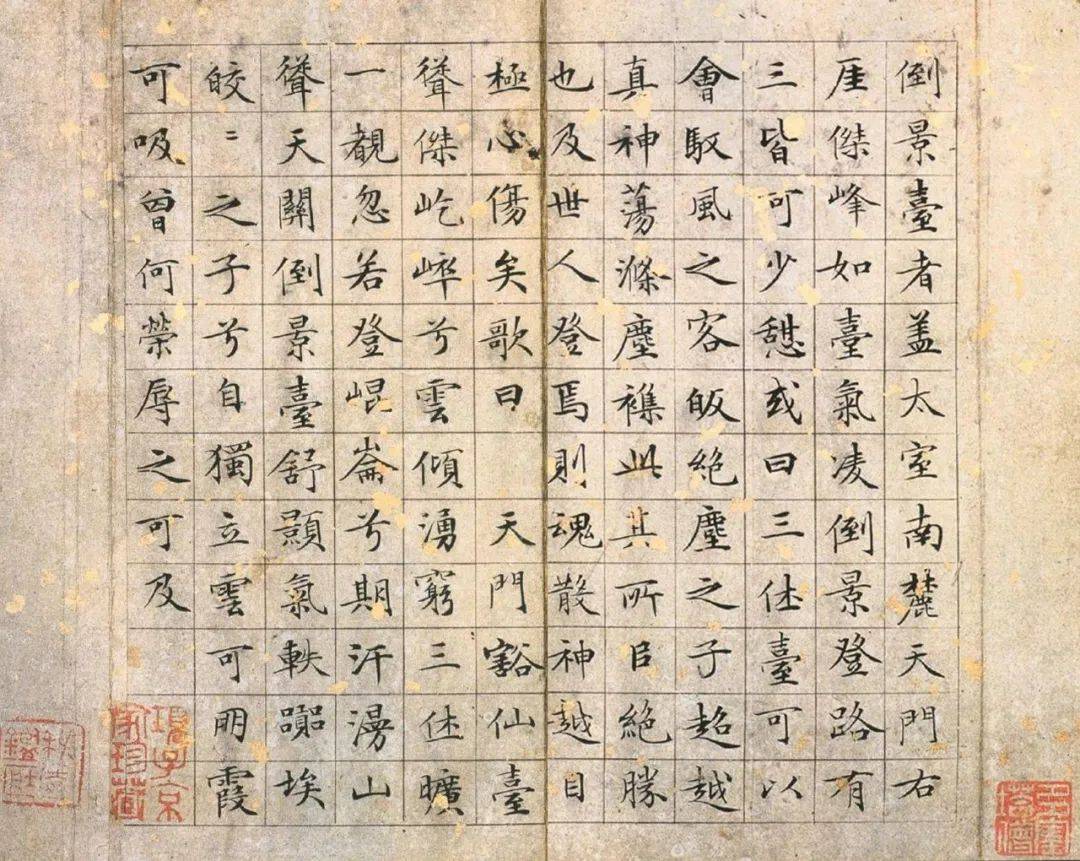 倒景臺者盖太室南麓天門右
厓傑峰如臺氣凌倒景登路有
三皆可少憇或曰三休臺可以
會馭風之客皈絶塵之子超越
真神蕩滌塵襍此其所㠯絶勝
也及世人登焉則魂散神越目
極心傷矣歌曰 天門豁仙臺
聳傑屹崒兮雲傾湧窮三休曠
一覩忽若登崐崙兮期汗漫山
聳天關倒景臺舒顥氣軼囂埃
皎〻之子兮自獨立雲可明霞
可吸曾何榮辱之可及
項子京家珍藏